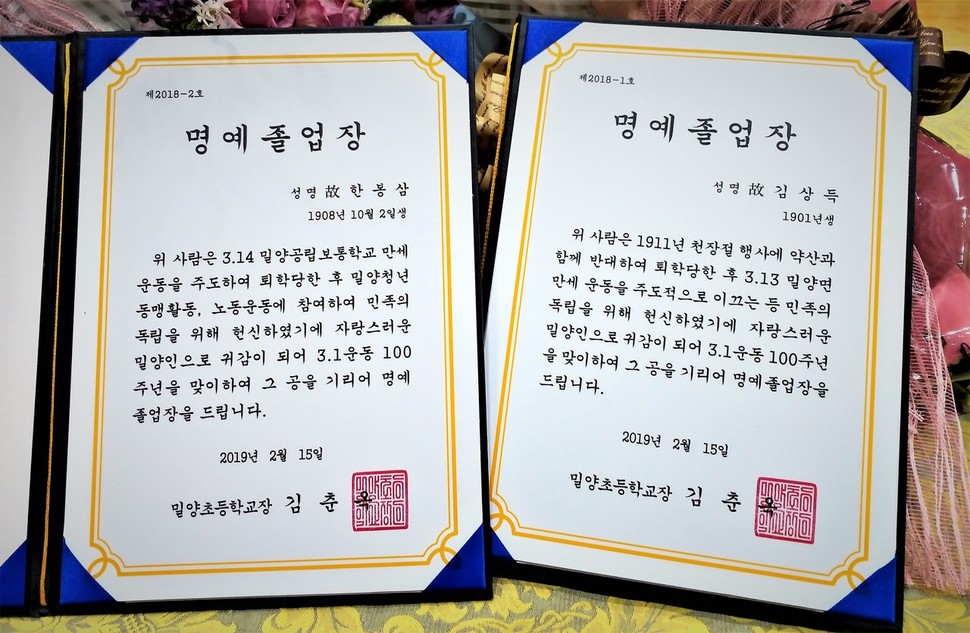 제2018-2호
명예졸업장
성명 故 한봉삼
1908년 10월 2일생
위 사람은 3.14 밀양공립보통학교 만세
운동을 주도하여 퇴학당한 후 밀양청년
동맹활동, 노동운동에 참여하여 민족의
독립을 위해 헌신하였기에 자랑스러운
밀양인으로 귀감이 되어 3.1운동 100
주년을 맞이하여 그 공을 기리어 명예
졸업장을 드립니다.
2019년 2월 15일
밀양초등학교장 김춘옥
제2018-1호
명예졸업장
성명 故 김상득
1901년생
위 사람은 1911년 천장절 행사에 약산과
함께 반대하여 퇴학당한 후 3.13 밀양면
만세 운동을 주도적으로 이끄는 등 민족의
독립을 위해 헌신하였기에 자랑스러운
밀양인으로 귀감이 되어 3.1운동 100주년
을 맞이하여 그 공을 기리어 명예졸업장을
드립니다.
2019년 2월 15일
밀양초등학교장 김춘옥